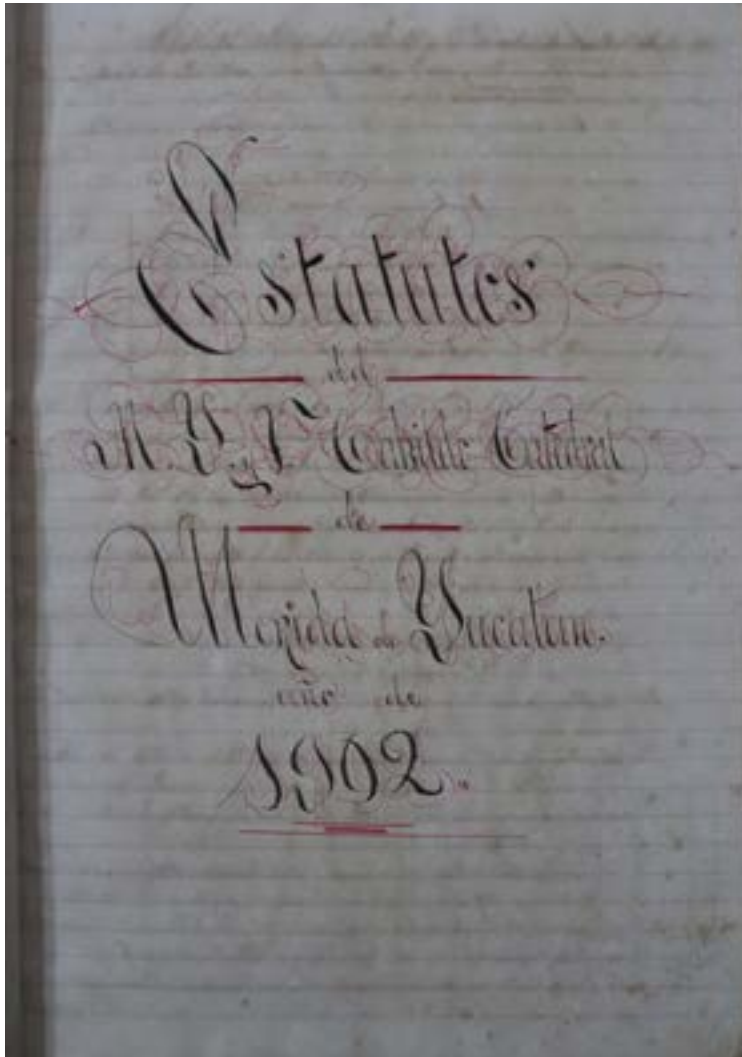 Estatutos
del
M. Y. y V. Cabildo Catedral
de
Merida de Yucatan.
año de
1902.